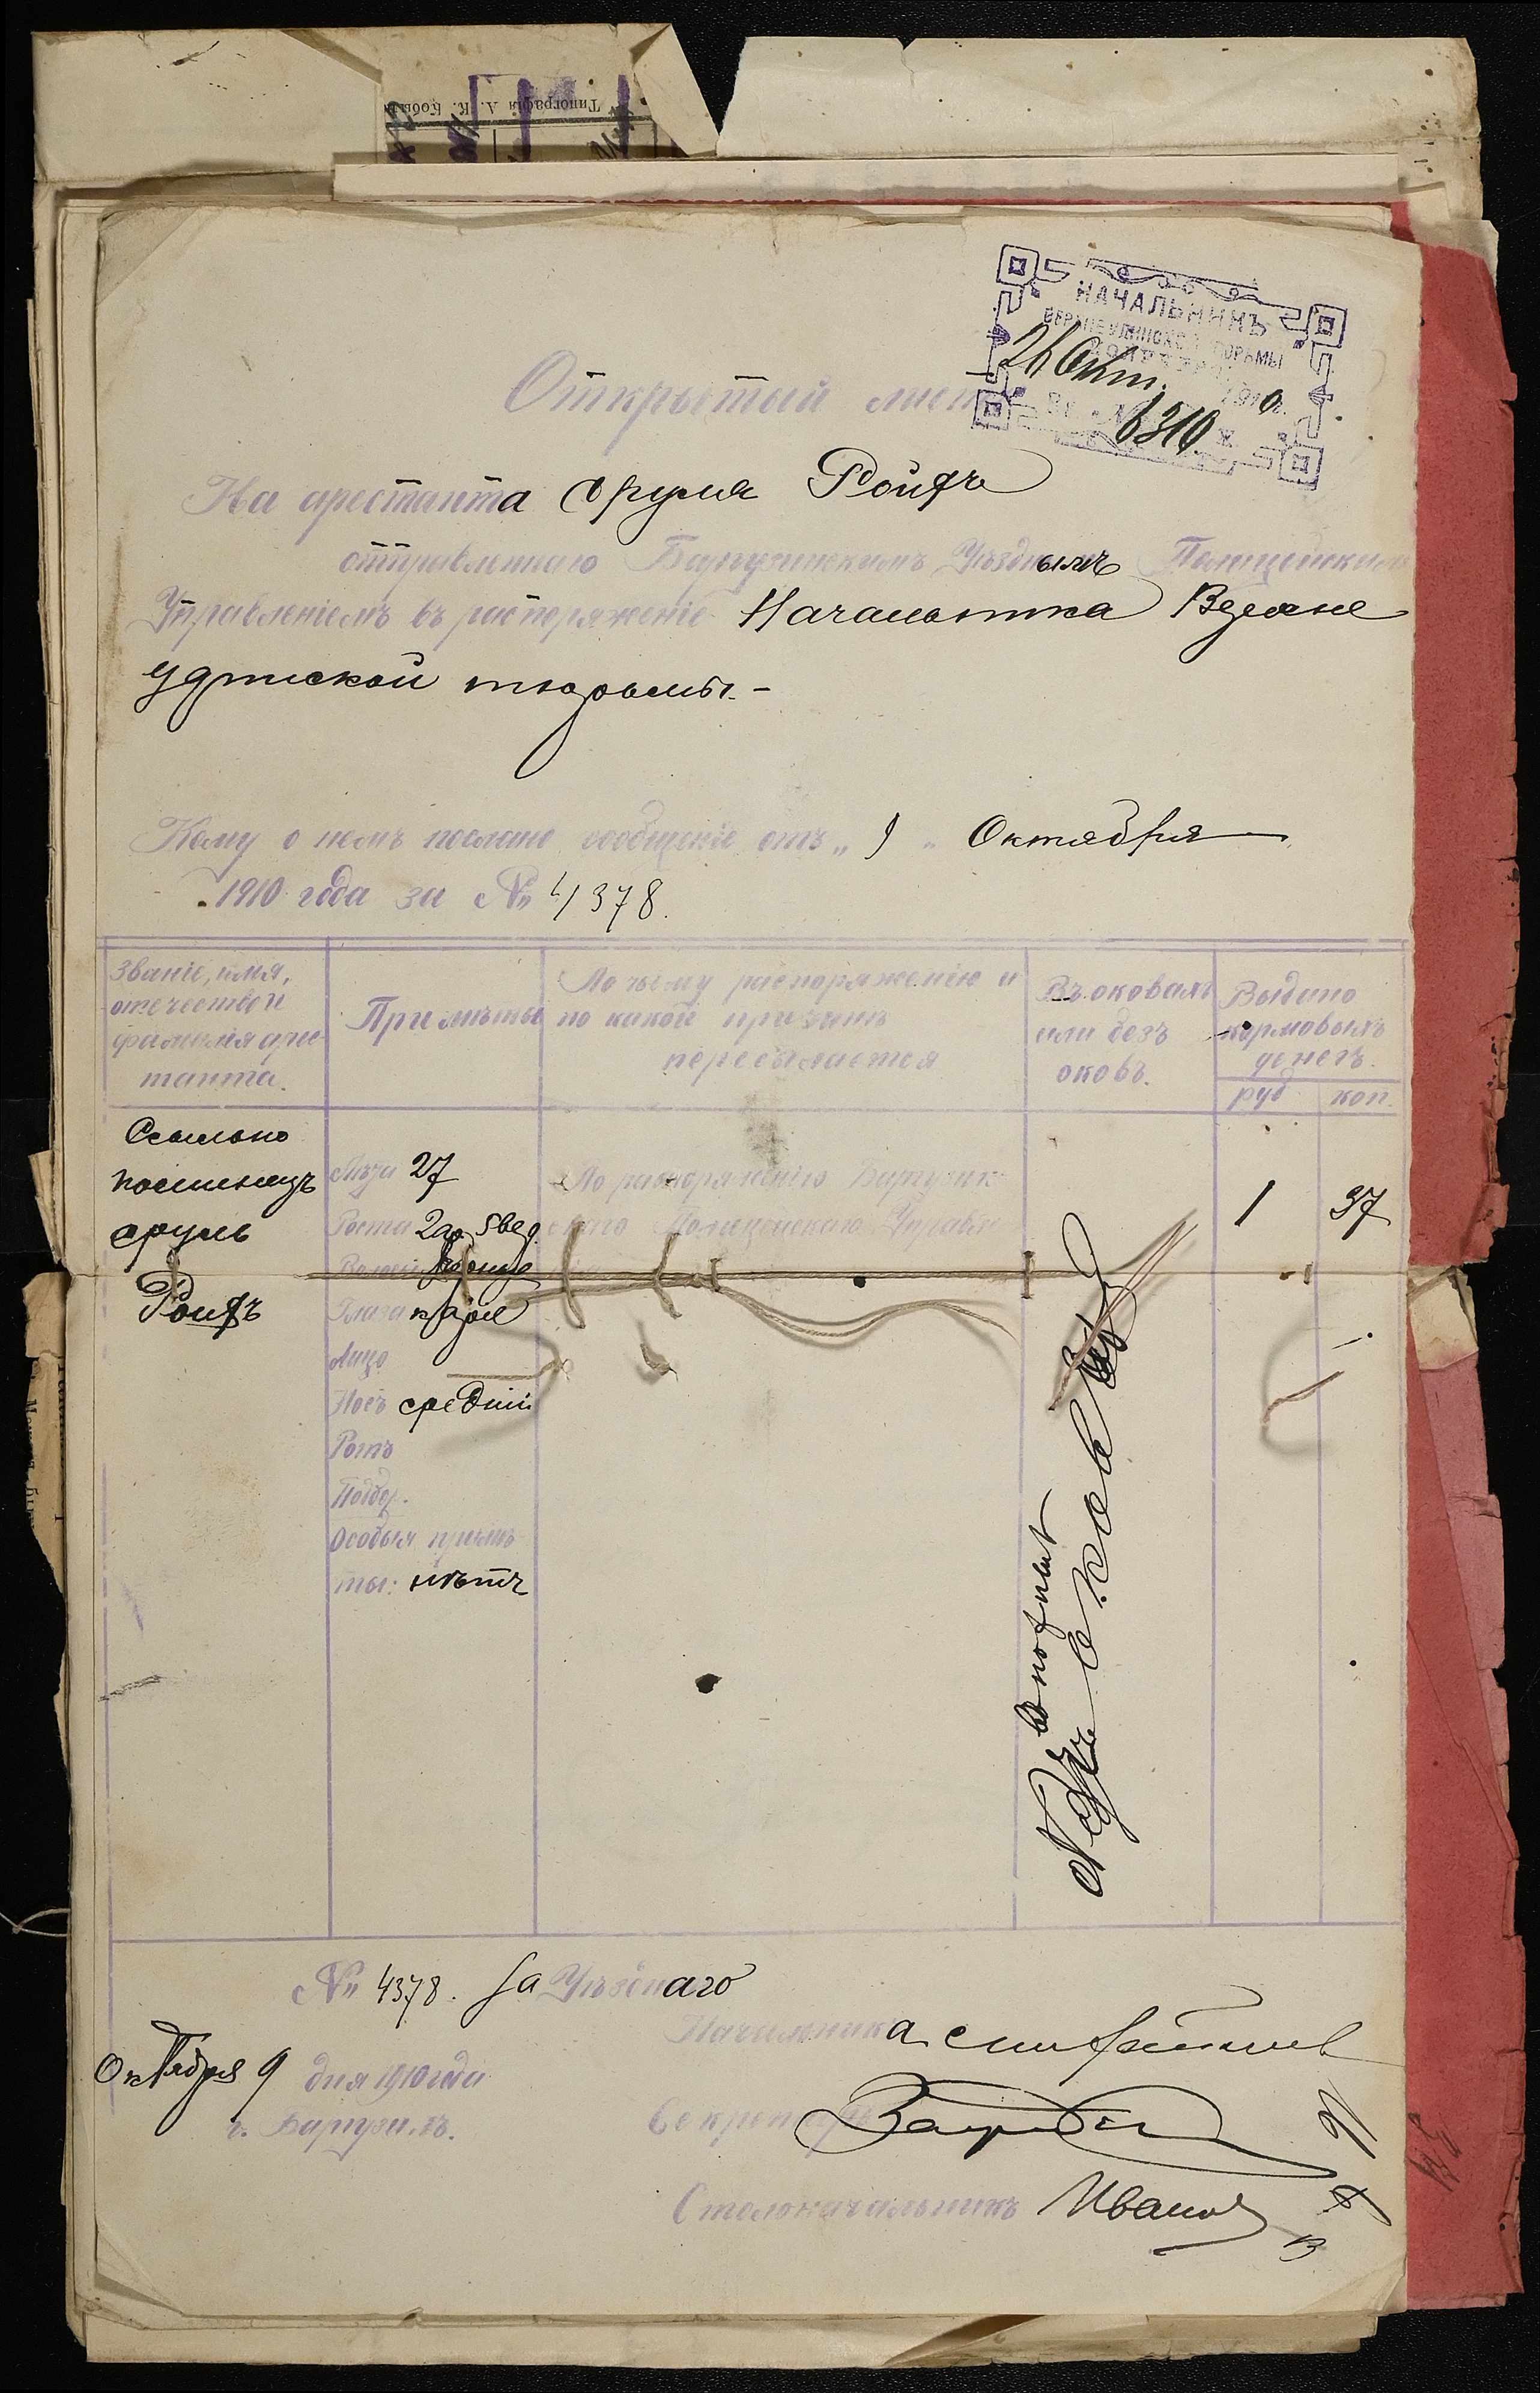 Типографія А. К. Кобы
НАЧАЛЬНИКЪ
ВЕРХНЕУДИНСКОЙ ТЮРЬМЫ
26 Окт. 1910 г.
6310
Открытый лист
На арестанта Сруля Ройфъ
отправленнаго Баргузинскимъ Уѣзднымъ Полицейскимъ
Управленіемъ въ распоряженіе Начальника Верхне
удинской тюрьмы.-
Кому о немъ послано сообщеніе отъ „9„ Октября
1910 года за № 4378.
Званіе, имя,
отчество и
фамилія арес-
танта.
Примѣты
По чьему распоряженію и
по какой причинѣ
пересылается
Въ оковахъ
или безъ
оковъ.
Выдано
кормовыхъ
денегъ.
руб
коп.
Ссыльно
поселенецъ
Сруль
Ройфъ
Лѣта 27
Роста 2 ар. 5 вер.
Волосы черные
Глаза каріе
Лицо
Носъ средній
Ротъ
Подбор.
Особыя примѣ-
ты: нѣтъ
По распоряженію Баргузин-
скаго Полицейскаго Управле
1
37
№ 4378. За Уѣзднаго
Начальника
Октября 9 дня 1910 года
г. Баргузинъ.
Секретарь
Столоначальникъ Иванов